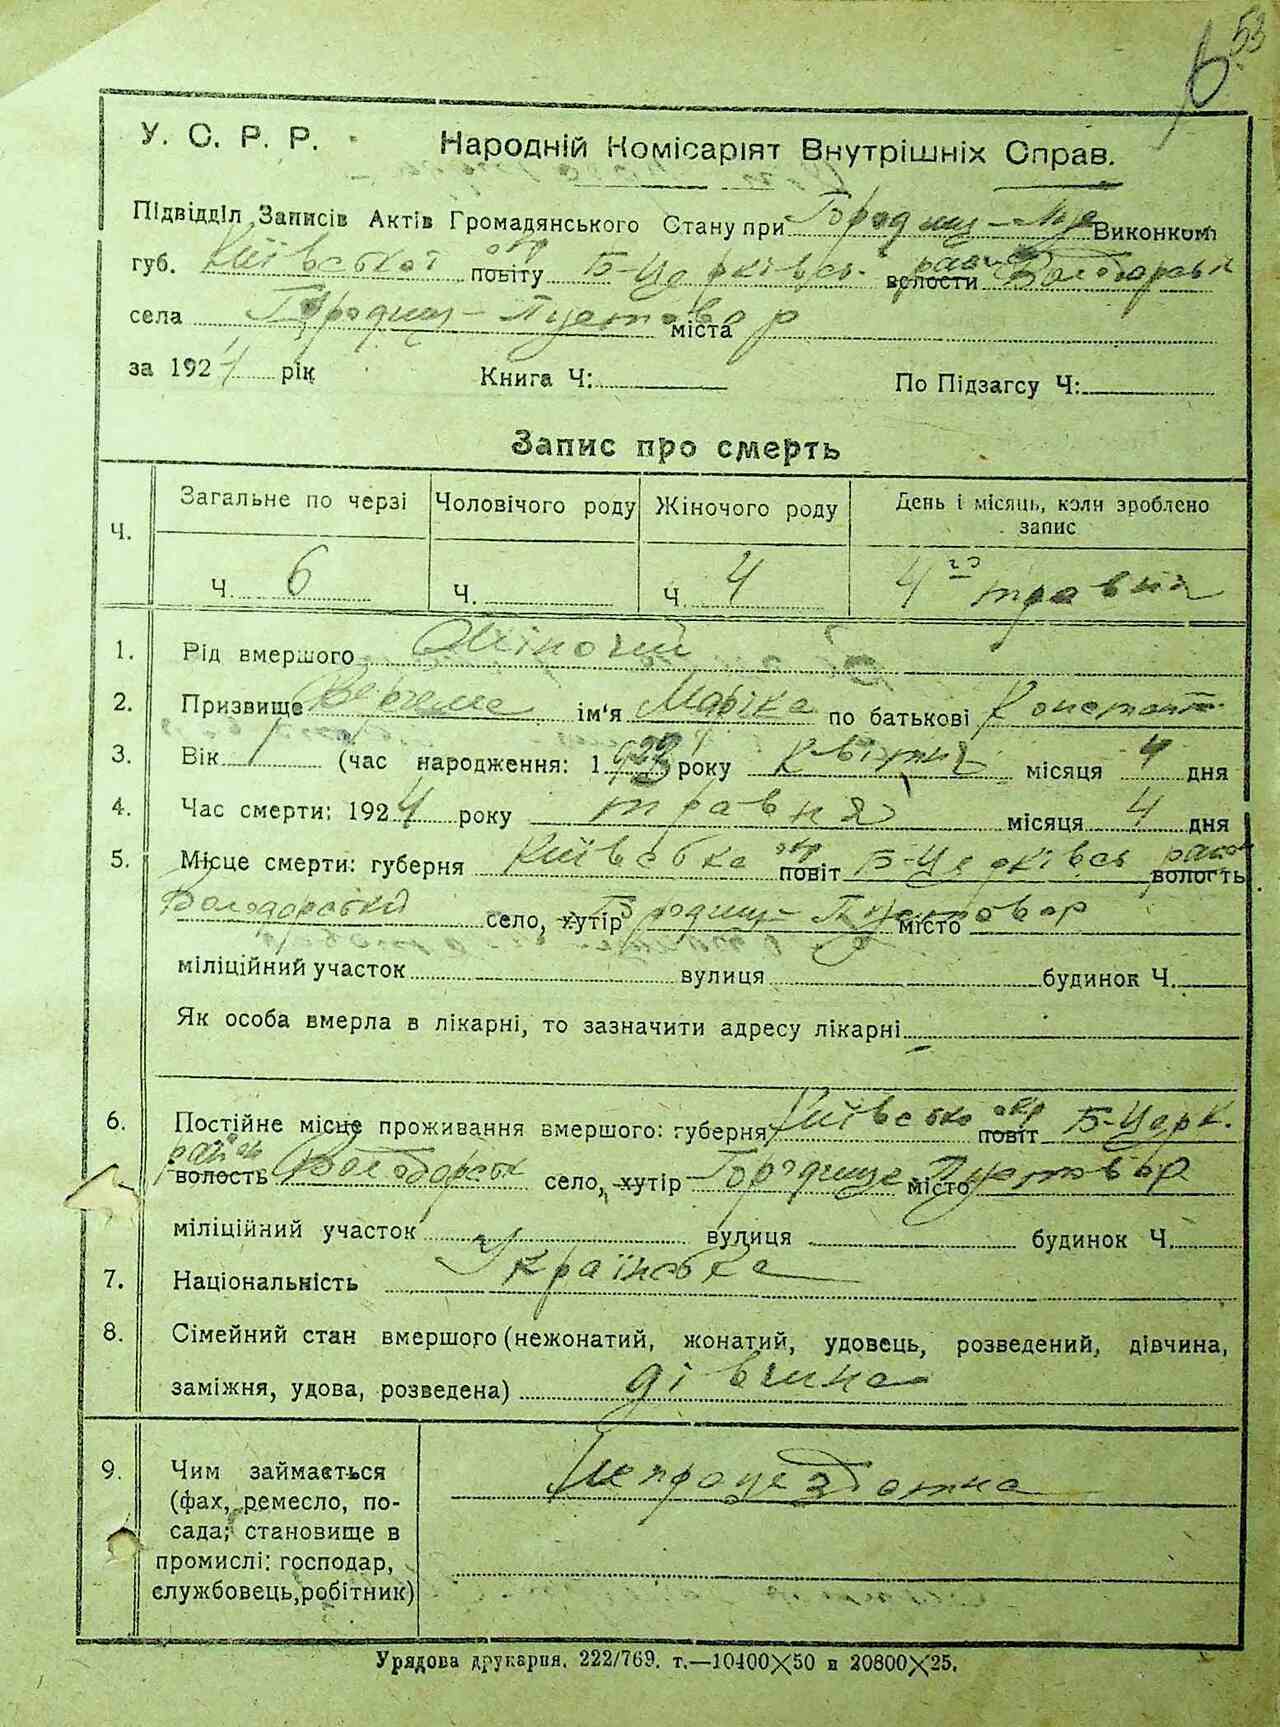 53
6
У. С. Р. Р. Народній Комісаріят Внутрішніх Справ.
Підвідділ Записів Актів Громадянського Стану при Городищ-Пус Виконком
губ. Київської окр повіту Б-Церківсь. район волости Володарськ
села Городищ-Пустовар міста
за 1924 рік Книга Ч: По Підзагсу Ч:
Запис про смерть
Ч. Загальне по черзі Чоловічого роду Жіночого роду День і місяць, коли зроблено запис
Ч. 6 Ч. Ч. 4 4го травня
1. Рід вмершого Жіночий
2. Призвище ім'я Маріка по батькові Констант
3. Вік 1 (час народження: 1923 року Квітня місяця 4 дня
4. Час смерти: 1924 року травня місяця 4 дня
5. Місце смерти: губерня Київська окр повіт Б-Церківсь район волость
Володарський село, хутір Городищ-Пустовар місто
міліційний участок вулиця будинок Ч.
Як особа вмерла в лікарні, то зазначити адресу лікарні
6. Постійне місце проживання вмершого: губерня Київсько окр повіт Б-Церк.
район волость Володарськ село, хутір Городище Пустовар місто
міліційний участок вулиця будинок Ч.
7. Національність Українська
8. Сімейний стан вмершого (нежонатий, жонатий, удовець, розведений, дівчина,
заміжня, удова, розведена) дівчина
9. Чим займається
(фах, ремесло, по-
сада; становище в
промислі: господар,
службовець, робітник)
Непрацездатна
Урядова друкарня. 222/769. т.—10400×50 и 20800×25.